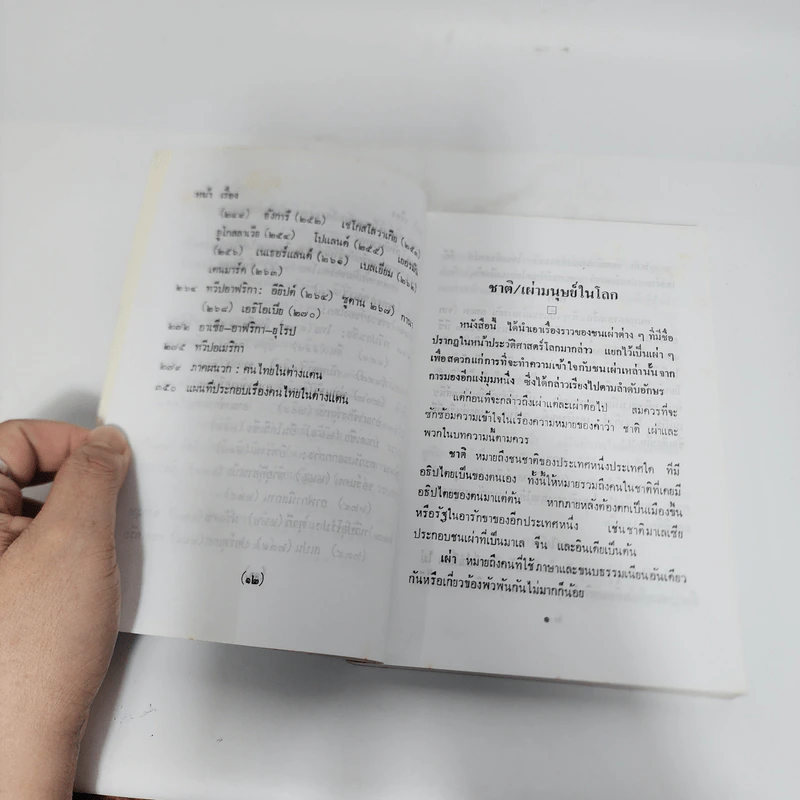 หน้า เรื่อง
(๒๔๔) ฮังการี (๒๕๒) เชโกสโลวาเกีย (๒๕๓)
ยูโกสลาเวีย (๒๕๔) โปแลนด์ (๒๕๕) เยอรมัน
(๒๕๖) เนเธอร์แลนด์ (๒๖๑) เบลเยียม (๒๖๒)
เดนมาร์ค (๒๖๓)
๒๖๔ ทวีปอาฟริกา: อียิปต์ (๒๖๔) ซูดาน ๒๖๗) กานา
(๒๖๘) เอธิโอเปีย (๒๗๐)
๒๗๒ อาเซีย-อาฟริกา-ยุโรป
๒๗๕ ทวีปอเมริกา
๒๘๔ ภาคผนวก : คนไทยในต่างแดน
๓๕๐ แผนที่ประกอบเรื่องคนไทยในต่างแดน
(๑๒)
ชาติ/เผ่ามนุษย์ในโลก
หนังสือนี้ ได้นำเอาเรื่องราวของชนเผ่าต่าง ๆ ที่มีชื่อ
ปรากฏในหน้าประวัติศาสตร์โลกมากล่าว แยกไว้เป็นเผ่า ๆ
เพื่อสดวกแก่การที่จะทำความเข้าใจกับชนเผ่าเหล่านั้นจาก
การมองอีกแง่มุมหนึ่ง ซึ่งได้กล่าวเรื่องไปตามลำดับอักษร
แต่ก่อนที่จะกล่าวถึงเผ่าแต่ละเผ่าต่อไป สมควรที่จะ
ซักซ้อมความเข้าใจในเรื่องความหมายของคำว่า ชาติ เผ่าและ
พวกในบทความนี้ตามควร
ชาติ หมายถึงชนชาติของประเทศหนึ่งประเทศใด ที่มี
อธิปไตยเป็นของตนเอง ทั้งนี้ให้หมายรวมถึงคนในชาติที่เคยมี
อธิปไตยของตนมาแต่ต้น หากภายหลังต้องตกเป็นเมืองขึ้น
หรือรัฐในอารักขาของอีกประเทศหนึ่ง เช่นชาติมาเลเซีย
ประกอบชนเผ่าที่เป็นมาเล จีน และอินเดียเป็นต้น
เผ่า หมายถึงคนที่ใช้ภาษาและขนบธรรมเนียนอันเดียว
กันหรือเกี่ยวข้องพัวพันกันไม่มากก็น้อย
๑